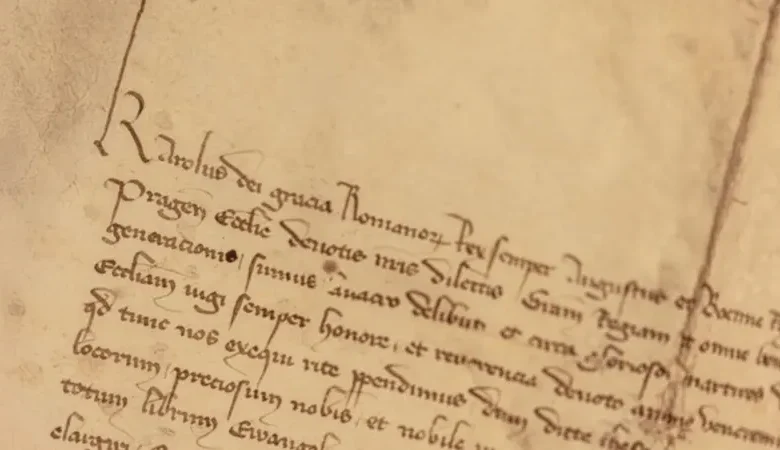 Karolus dei gracia Romanorꝝ Rex semper Augustus et Boemie
Pragen Ecclie deuotis nris dilectis Gram Regiam et omne
generacionis, sumus delibuti et circa gloriosos martires
Eccliam iugi semper honore, et reuerencia deuoto animo
qd tunc nos exequi rite ppendimus dum dicte
locorum, preciosum nobis, et nobile
totum librum Ewangel